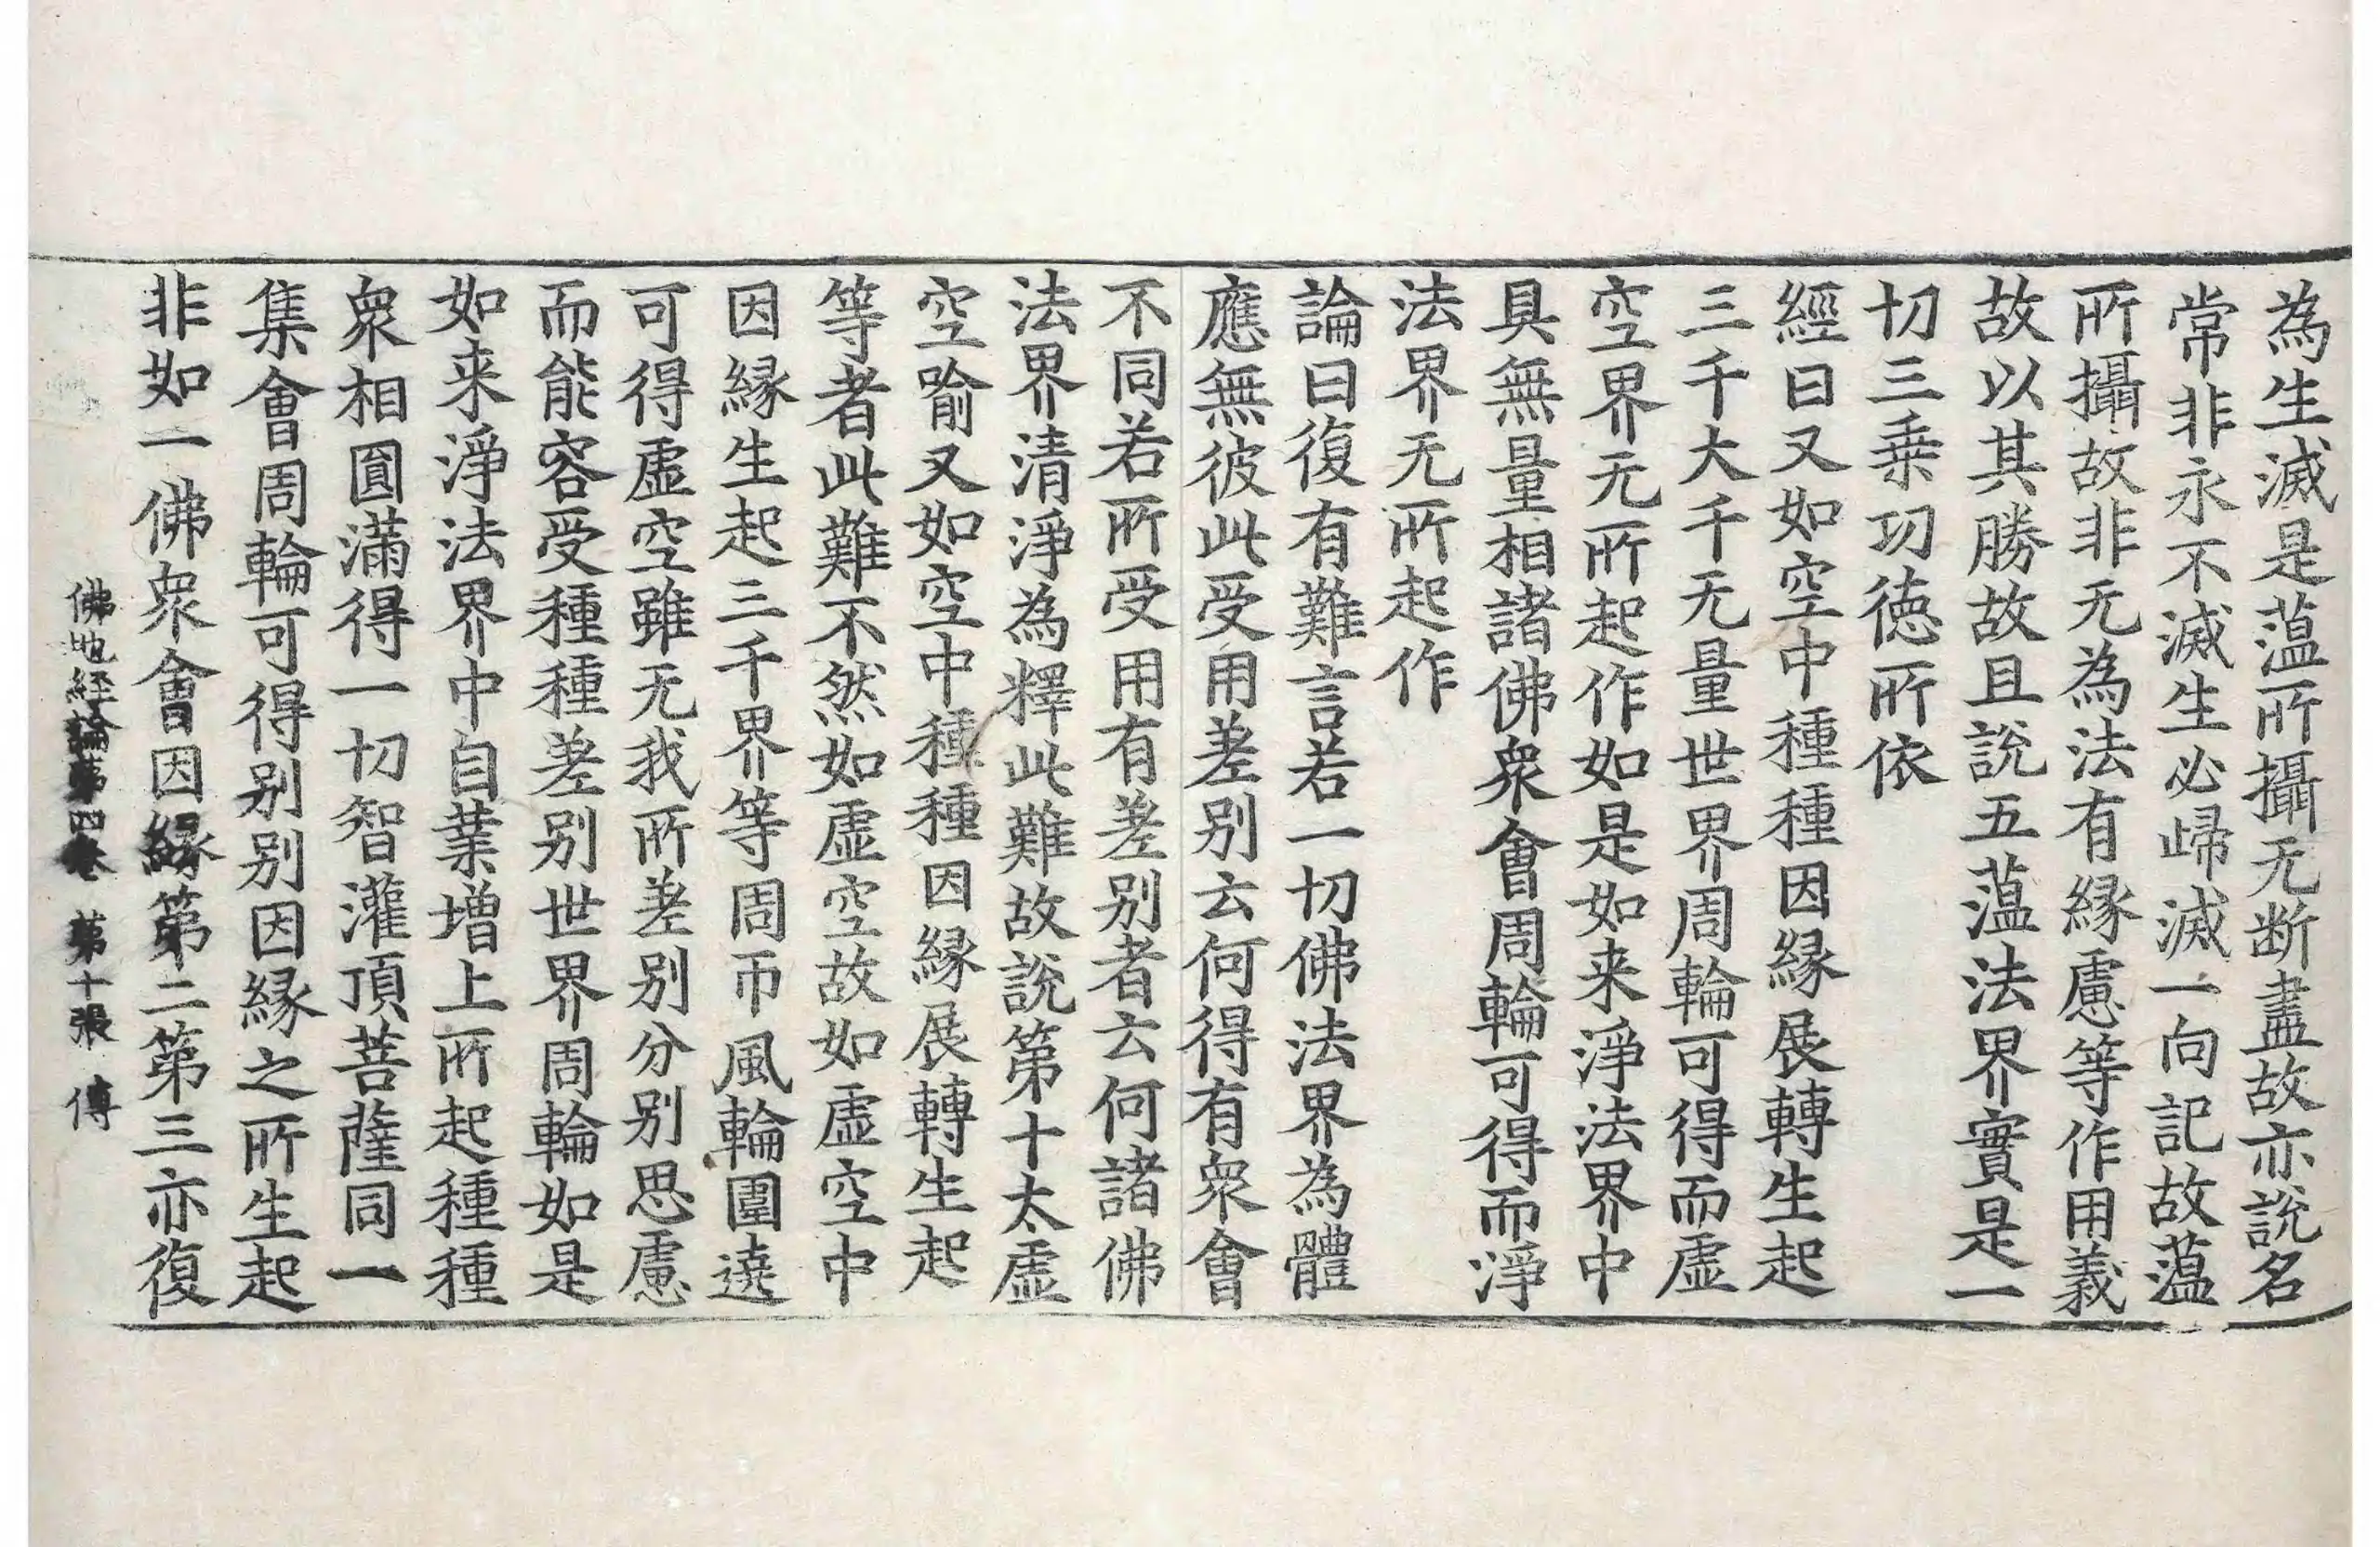 為生滅是薀所攝无断盡故亦說名
常非永不滅生必歸滅一向記故薀
所攝故非无為法有緣慮等作用義
故以其勝故且說五薀法界實是一
切三乗功德所依
經曰又如空中種種因緣展轉生起
三千大千无量世界周輪可得而虛
空界无所起作如是如来淨法界中
具無量相諸佛衆會周輪可得而淨
法界无所起作
論曰復有難言若一切佛法界為體
應無彼此受用差别云何得有衆會
不同若所受用有差别者云何諸佛
法界清淨為釋此難故說第十太虛
空喻又如空中種種因緣展轉生起
等者此難不然如虛空故如虛空中
因緣生起三千界等周帀風輪圍遶
可得虛空雖无我所差别分别思慮
而能容受種種差别世界周輪如是
如来淨法界中自業增上所起種種
衆相圓滿得一切智灌頂菩薩同一
集會周輪可得别别因緣之所生起
非如一佛衆會因緣第二第三亦復
佛地経論第四卷 第十張 傳